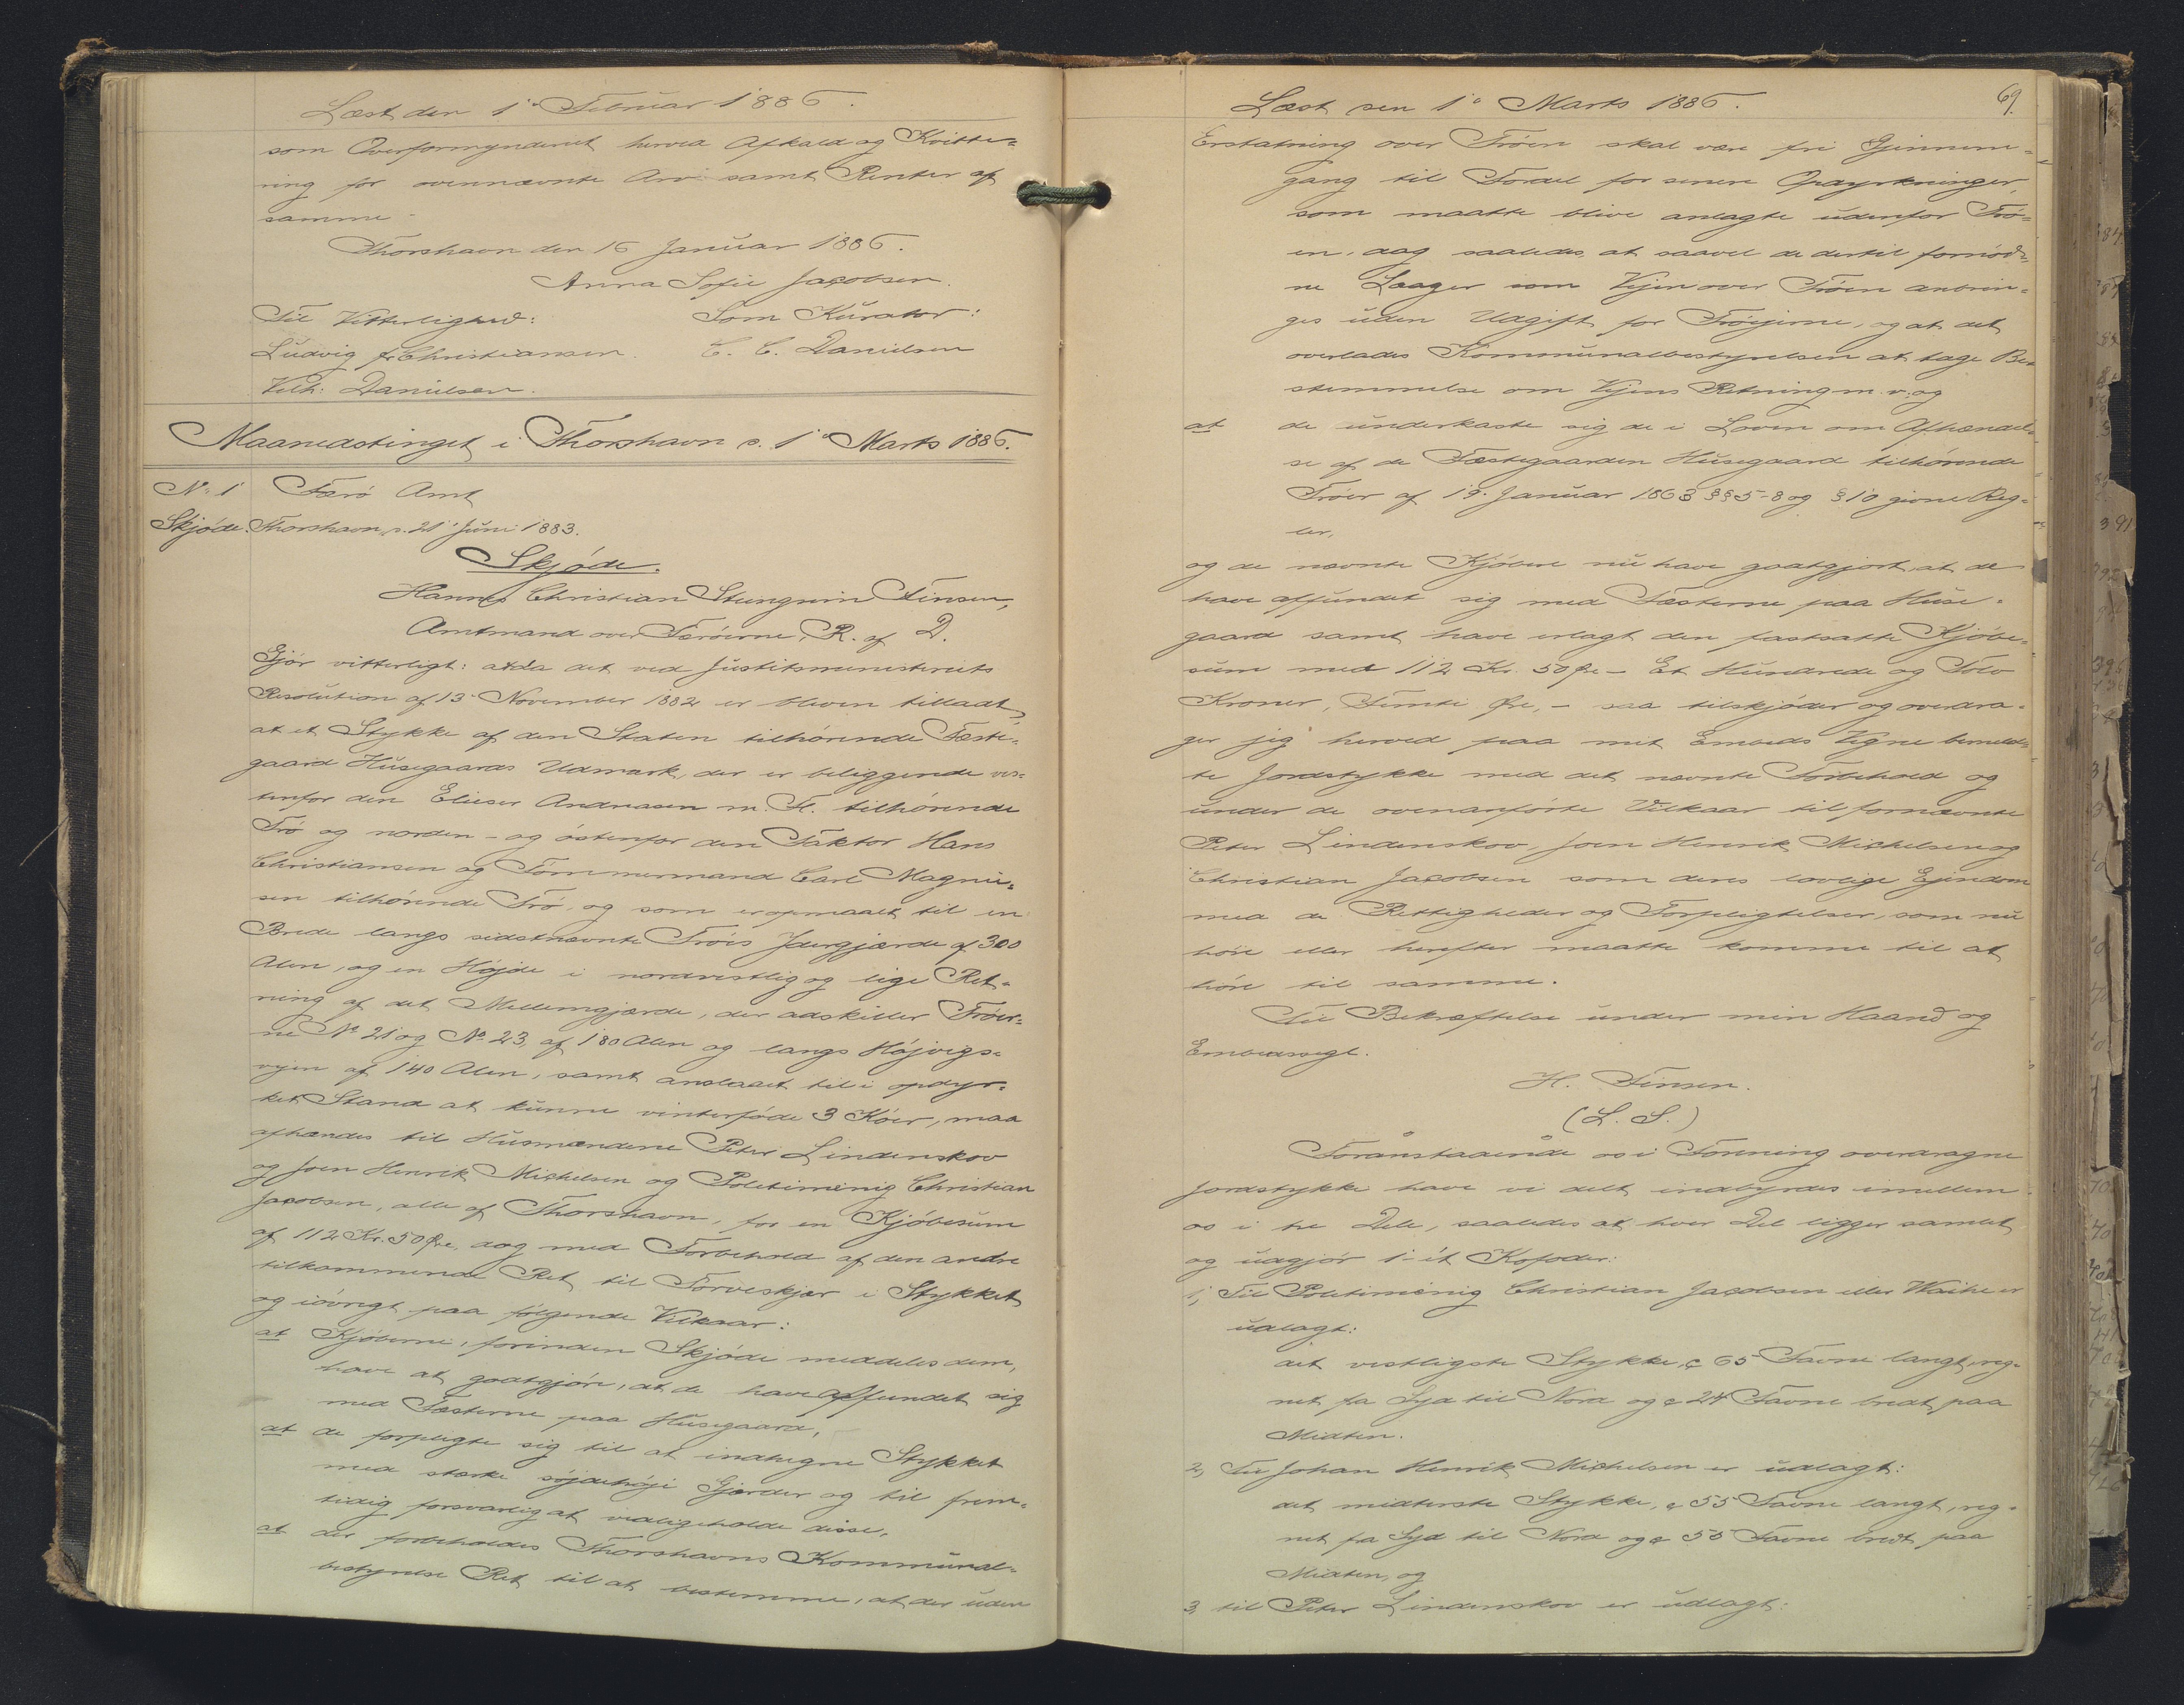 Læst den 1ᵉ Februar 1886.
som Overformynderiet herved Afkald og Kvitte=
ring for ovennævnte Arv samt Renter af
samme -
Thorshavn den 16 Januar 1886.
Anna Sofie Jacobsen.
Til Vitterlighed: Som Kurator:
Ludvig Christiansen. C. C. Danielsen
Vilh: Danielsen.
Maanedstinget i Thorshavn d. 1ᵉ Marts 1886.
Nº 1 Færø Amt
Skjøde. Thorshavn, d. 21' Juni 1883.
Skjøde.
Hannes Christian Steingrim Finsen,
Amtmand over Færøerne, R. af D.
Gjør vitterligt: at da det ved Justitsministeriets
Resolution af 13' November 1882 er bleven tilladt,
at et Stykke af den Staten tilhørende Fæste=
gaard Husegaards Udmark, der er beliggende ves=
tenfor den Elieser Andreasen m. Fl. tilhørende
Trø og norden- og østenfor den Faktor Hans
Christiansen og Tømmermand Carl Magnu=
sen tilhørende Trø, og som er opmaalt til en
Brede langs sidstnævnte Trøis Ydergjærde af 300
Alen, og en Højde i nordvestlig og lige Ret=
ning af det Mellemgjærde, der adskiller Trøer=
ne Nº 21 og Nº 23, af 180 Alen og langs Højvigs=
vejen af 140 Alen, samt anslaaet til i opdyr=
ket Stand at kunne vinterføde 3 Køer, maa
afhændes til Husmændene Peter Lindenskov
og Joen Henrik Michelsen og Politimenig Christian
Jacobsen, alle af Thorshavn, for en Kjøbesum
af 112 Kr. 50 Øre, dog med Forbehold af den andre
tilkommende Ret til Tørveskjær i Stykket
og iøvrigt paa følgende Vilkaar:
at Kjøberne, forinden Skjøde meddeles dem,
have at godtgjøre, at de have affundet sig
med Fæsterne paa Husegaard,
at de forpligte sig til at indhegne Stykket
med stærke søjdehøje Gjærder og til frem=
tidig forsvarlig at vedligeholde disse,
at der forbeholdes Thorshavns Kommunal=
bestyrelse Ret til at bestemme, at der uden
69.
Læst den 1ᵉ Marts 1886.
Erstatning over Trøen skal være fri Gjennem=
gang til Fordel for senere Opdyrkninger,
som maatte blive anlagte udenfor Trø=
en, dog saaledes, at saavel de dertil fornød=
ne Laager som Vejen over Trøen anbrin=
ges uden Udgift for Trøejerne, og at det
overlades Kommunalbestyrelsen at tage Be=
stemmelse om Vejens Retning m. v. og
at de underkaste sig de i Loven om Afhændel=
se af de Fæstegaarden Husegaard tilhørende
Trøer af 19. Januar 1863 §§ 5-8 og § 10 givne Reg=
ler,
og de nævnte Kjøbere nu have godtgjort, at de
have affundet sig med Fæsterne paa Huse=
gaard samt have erlagt den fastsatte Kjøbe=
sum med 112 Kr. 50 Øre - Et Hundrede og Tolv
Kroner, Femti Øre, - saa tilskjøder og overdra=
ger jeg herved paa mit Embeds Vegne bemeld=
te Jordstykke med det nævnte Forbehold og
under de ovenanførte Vilkaar til fornævnte
Peter Lindenskov, Joen Henrik Michelsen og
Christian Jacobsen som deres lovlige Ejendom
med de Rettigheder og Forpligtelser, som nu
høre eller herefter maatte komme til at
høre til samme.
Til Bekræftelse under min Haand og
Embedssegl.
H. Finsen.
(L. S.)
Foranstaaende os i Forening overdragne
Jordstykke have vi delt indbyrdes imellem
os i tre Dele, saaledes at hver Del ligger samlet
og udgjør 1 - ét Kofoder:
1, Til Politimenig Christian Jacobsen eller Waihe er
udlagt:
det vestligste Stykke, c 65 Favne langt, reg=
net fra Syd til Nord og c 24 Favne bredt paa
Midten.
2, Til Johan Henrik Michelsen er udlagt:
det midterste Stykke, c 55 Favne langt, reg=
net fra Syd til Nord og c 50 Favne bredt paa
Midten, og
3, til Peter Lindenskov er udlagt: